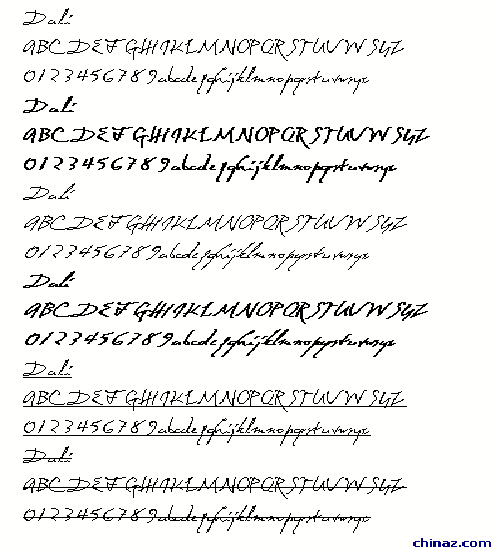 Dali
ABCDEFGHIJKLMNOPQRSTUVWXYZ
0123456789abcdefghijklmnopqrstuvwxyz
Dali
ABCDEFGHIJKLMNOPQRSTUVWXYZ
0123456789abcdefghijklmnopqrstuvwxyz
Dali
ABCDEFGHIJKLMNOPQRSTUVWXYZ
0123456789abcdefghijklmnopqrstuvwxyz
Dali
ABCDEFGHIJKLMNOPQRSTUVWXYZ
0123456789abcdefghijklmnopqrstuvwxyz
Dali
ABCDEFGHIJKLMNOPQRSTUVWXYZ
0123456789abcdefghijklmnopqrstuvwxyz
Dali
ABCDEFGHIJKLMNOPQRSTUVWXYZ
0123456789abcdefghijklmnopqrstuvwxyz
chinaz.com